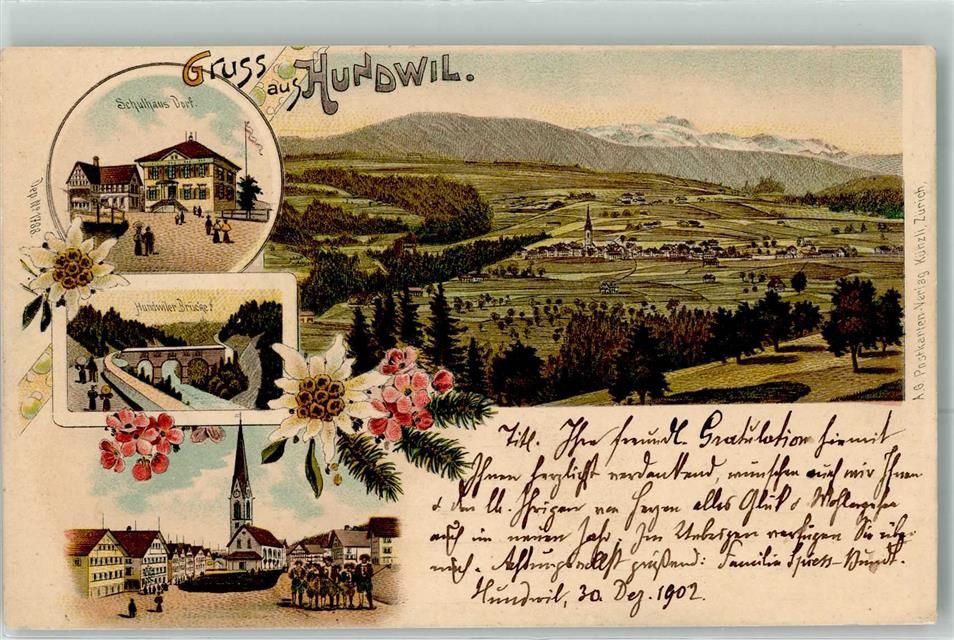 Gruss
aus HUNDWIL.
Schulhaus Dorf.
Hundwiler Brücke
A.G. Postkarten-Verlag Künzli, Zürich.
Titl. Ihre freundl. Gratulation hiemit
Ihnen herzlichst verdankend, wünschen auch wir Ihnen
& den lb. Ihrigen von Herzen alles Glük & Wohlergehen
auch im neuen Jahr. Im Uebrigen verfügen Sie über
mich. Achtungsvollst grüßend: Familie
Hundwil, 30 Dez. 1902.